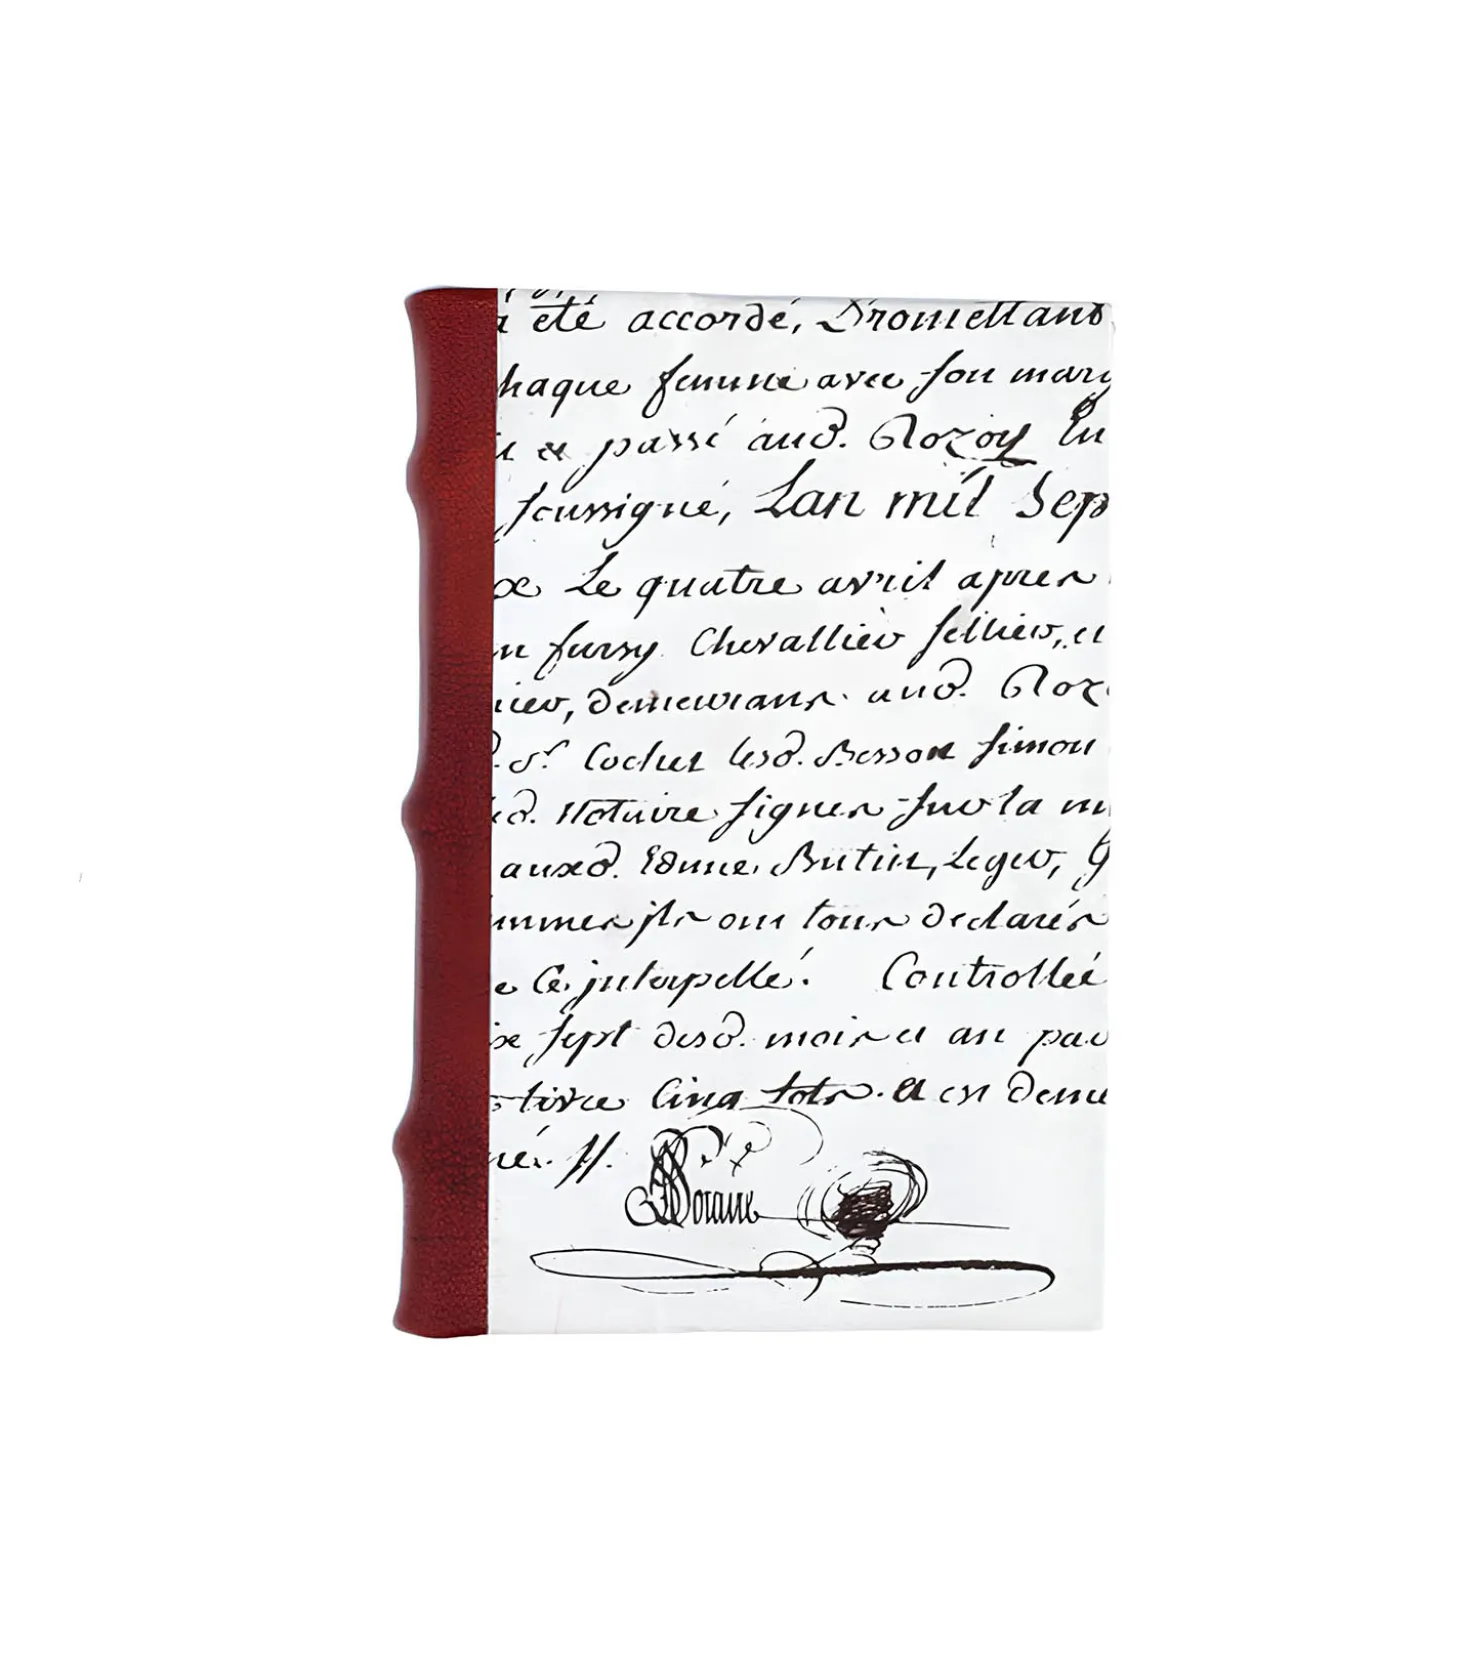 a été accordé, Promettant
haque femme avec son mary
passé aud. Rozoy En
soussigné, Lan mil Sep
Le quatre avril apres
fursy Chevallier sellier, et
demeurans aud. Roz
Sr. Cochet lesd. Besson Simon
Notaire signer sur la mi
auxd. Edme Butin, Leger, G
ils ont tous declarés
e Ce interpellé. Controllée
sept desd. mois et an par
Cinq sols. et est deme